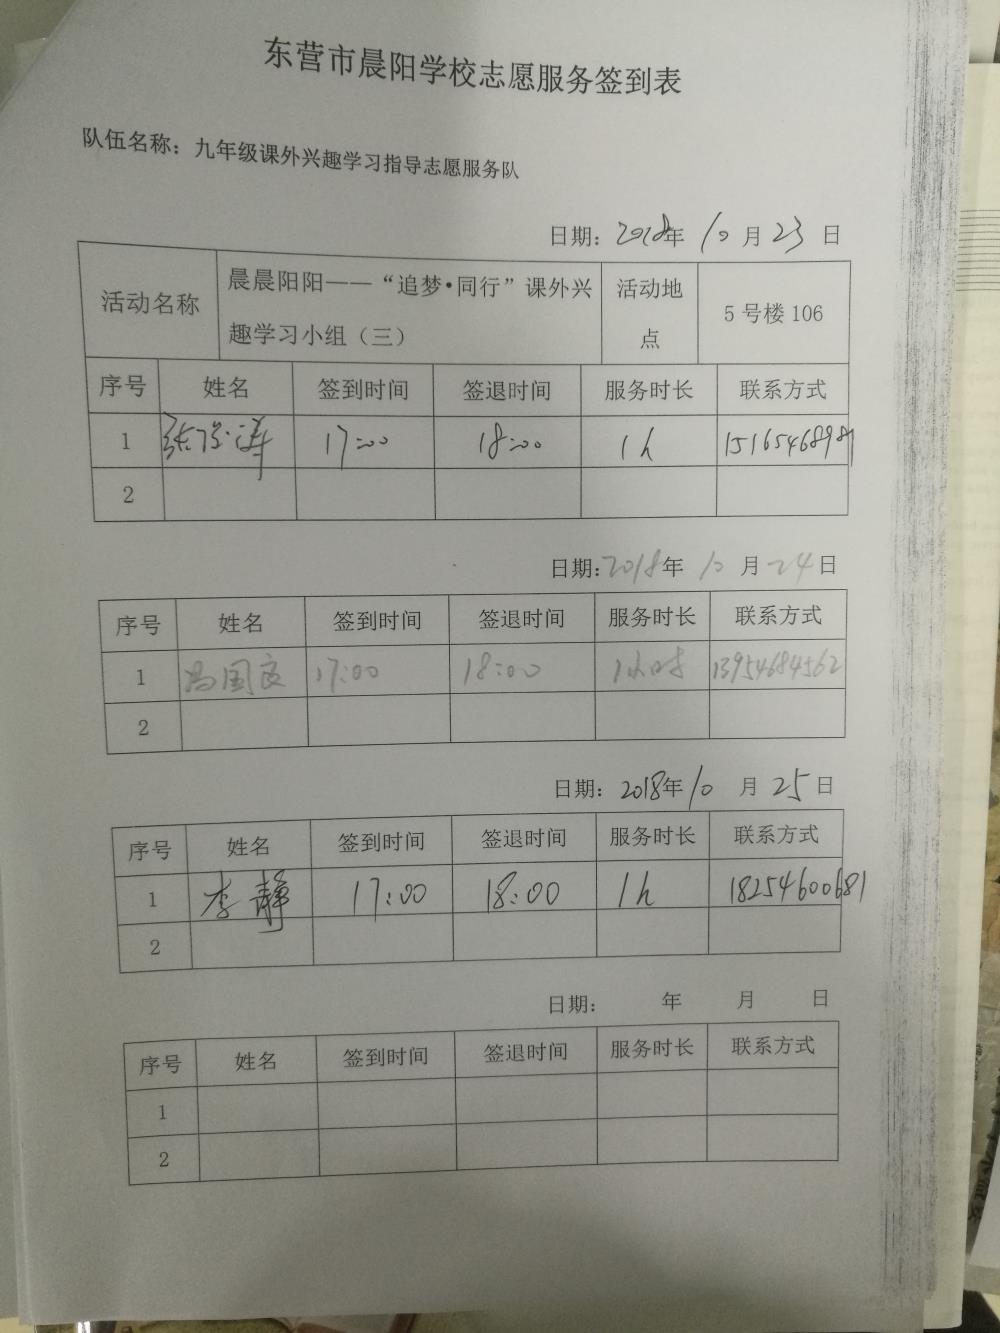 东营市晨阳学校志愿服务签到表
队伍名称：九年级课外兴趣学习指导志愿服务队
日期：2018年 10月 23 日
活动名称 晨晨阳阳——“追梦•同行”课外兴趣学习小组（三） 活动地点 5号楼106
序号 姓名 签到时间 签退时间 服务时长 联系方式
1 17:00 18:00 1h
2
日期：2018年 10 月 24 日
序号 姓名 签到时间 签退时间 服务时长 联系方式
1 冯国良 17:00 18:00 1小时 13954684562
2
日期：2018年 10 月 25 日
序号 姓名 签到时间 签退时间 服务时长 联系方式
1 李静 17:00 18:00 1h 18254600681
2
日期： 年 月 日
序号 姓名 签到时间 签退时间 服务时长 联系方式
1
2